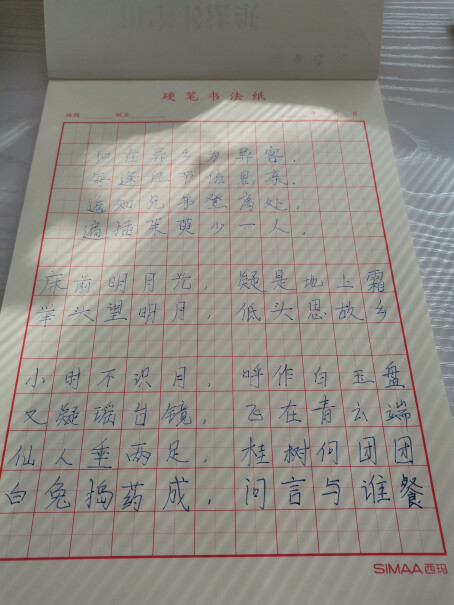 硬笔书法纸
独在异乡为异客，
每逢佳节倍思亲。
遥知兄弟登高处，
遍插茱萸少一人。
床前明月光，疑是地上霜
举头望明月，低头思故乡
小时不识月，呼作白玉盘
又疑瑶台镜，飞在青云端
仙人垂两足，桂树何团团
白兔捣药成，问言与谁餐
SIMAA西玛